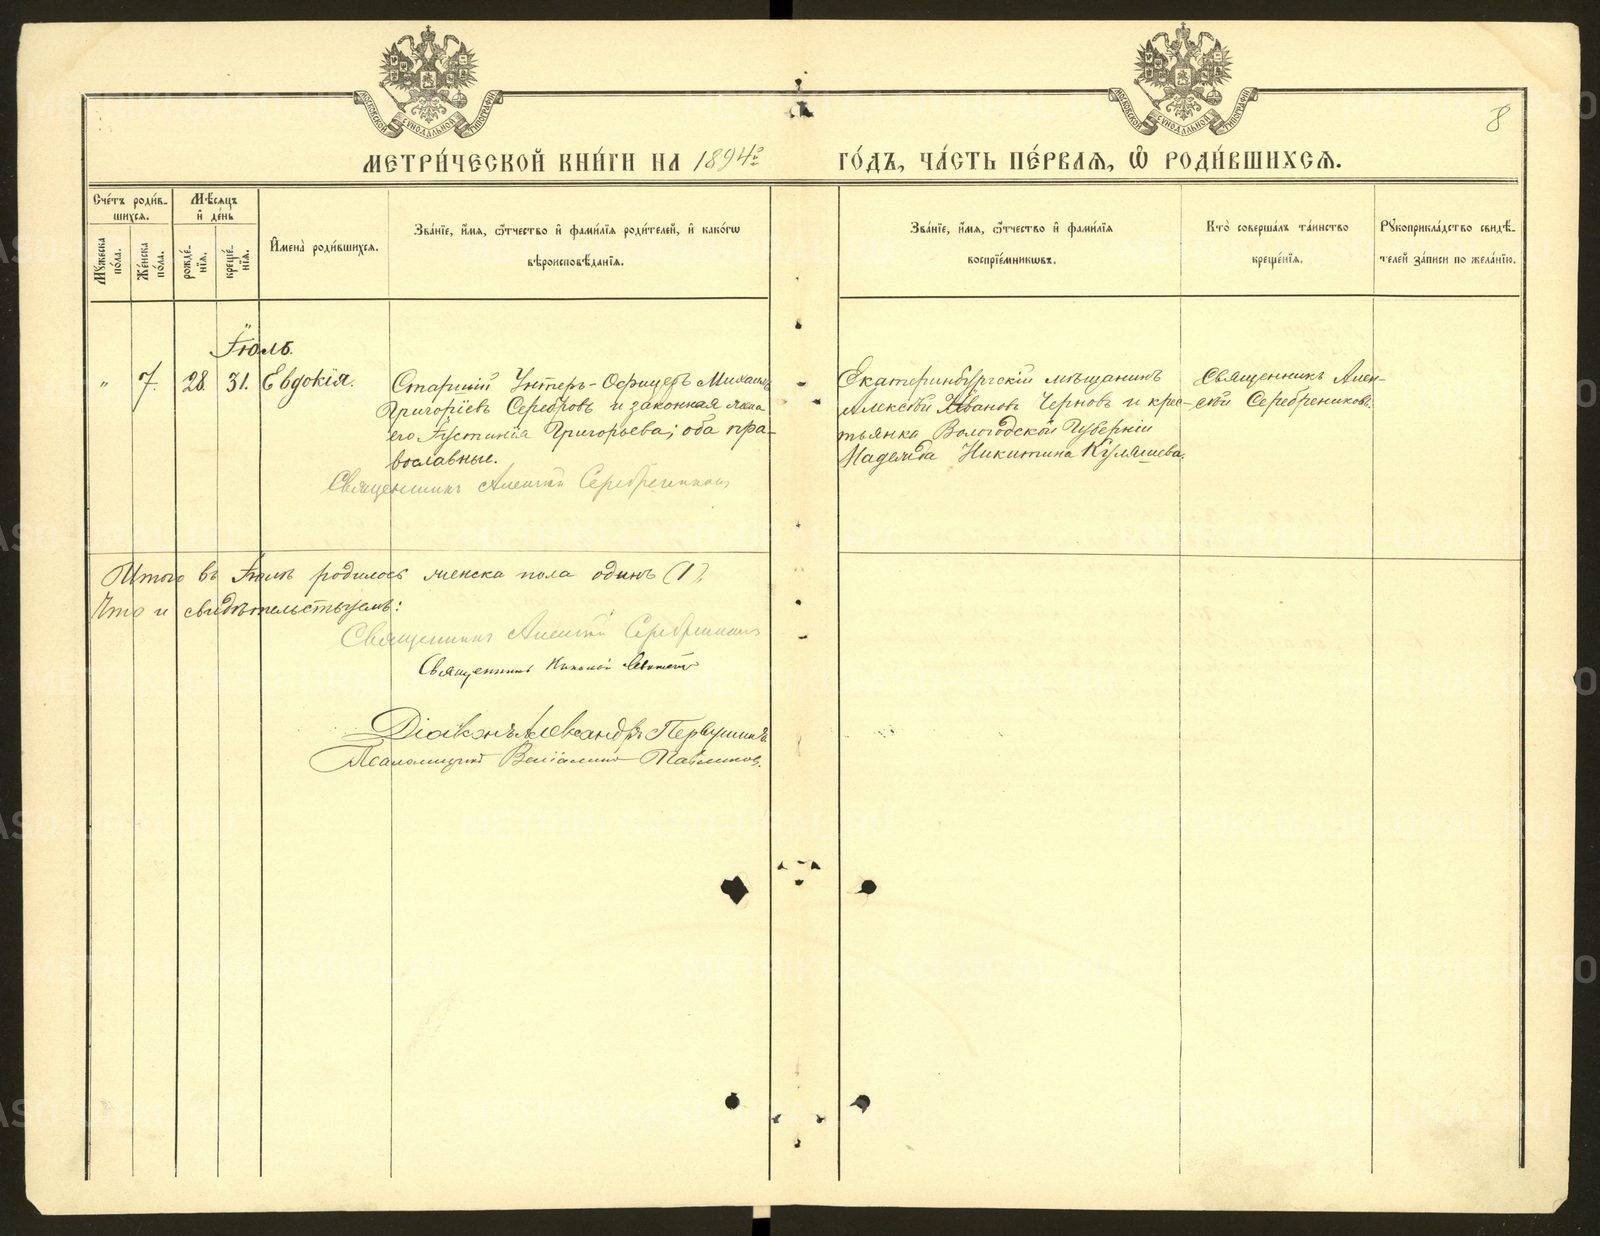 МОСКОВСКОЙ СѴНОДАЛЬНОЙ ТИПОГРАФІИ
МОСКОВСКОЙ СѴНОДАЛЬНОЙ ТИПОГРАФІИ
8
МЕТРИ́ЧЕСКОЙ КНИ́ГИ НА 1894 ГО́ДЪ, ЧА́СТЬ ПЕ́РВАЯ, Ѡ҆ РОДИ́ВШИХСЯ.
Сче́тъ роди́в-
шихся.
Мѣсяцъ
и҆ де́нь
Мꙋ́жеска
по́ла.
Же́нска
по́ла.
рожде́-
нїя.
креще́-
нїя.
И҆мена̀ роди́вшихся.
Зва́нїе, и҆́мя, ѻ҆́тчество и҆ фами́лїя роди́телей, и҆ како́гѡ
вѣроисповѣ́данїя.
Зва́нїе, и҆́мя, ѻ҆́тчество и҆ фами́лїя
воспрїе́мникѡвъ.
Кто̀ соверша́лъ та́инство
креще́нїя.
Рꙋкоприкла́дство свидѣ́-
телей за́писи по жела́нїю.
Іюль.
„ 7. 28. 31. Евдокія.
Старшій Унтеръ-Офицеръ Михаилъ
Григоріевъ Серебровъ и законная жена
его Іустинія Григорьева; оба пра-
вославные.
Священникъ Алексій Серебрениковъ
Екатеринбургскій мѣщанинъ
Алексѣй Ивановъ Черновъ и крес-
тьянка Вологодской Губерніи
Надежда Никитина Куляшева.
Священникъ Алек-
сій Серебрениковъ.
Итого въ Іюлѣ родилось женска пола одинъ (1).
Что и свидѣтельствуемъ:
Священникъ Алексій Серебрениковъ
Священникъ Николай
Діаконъ Александръ Первушинъ
Псаломщикъ Павлиновъ.